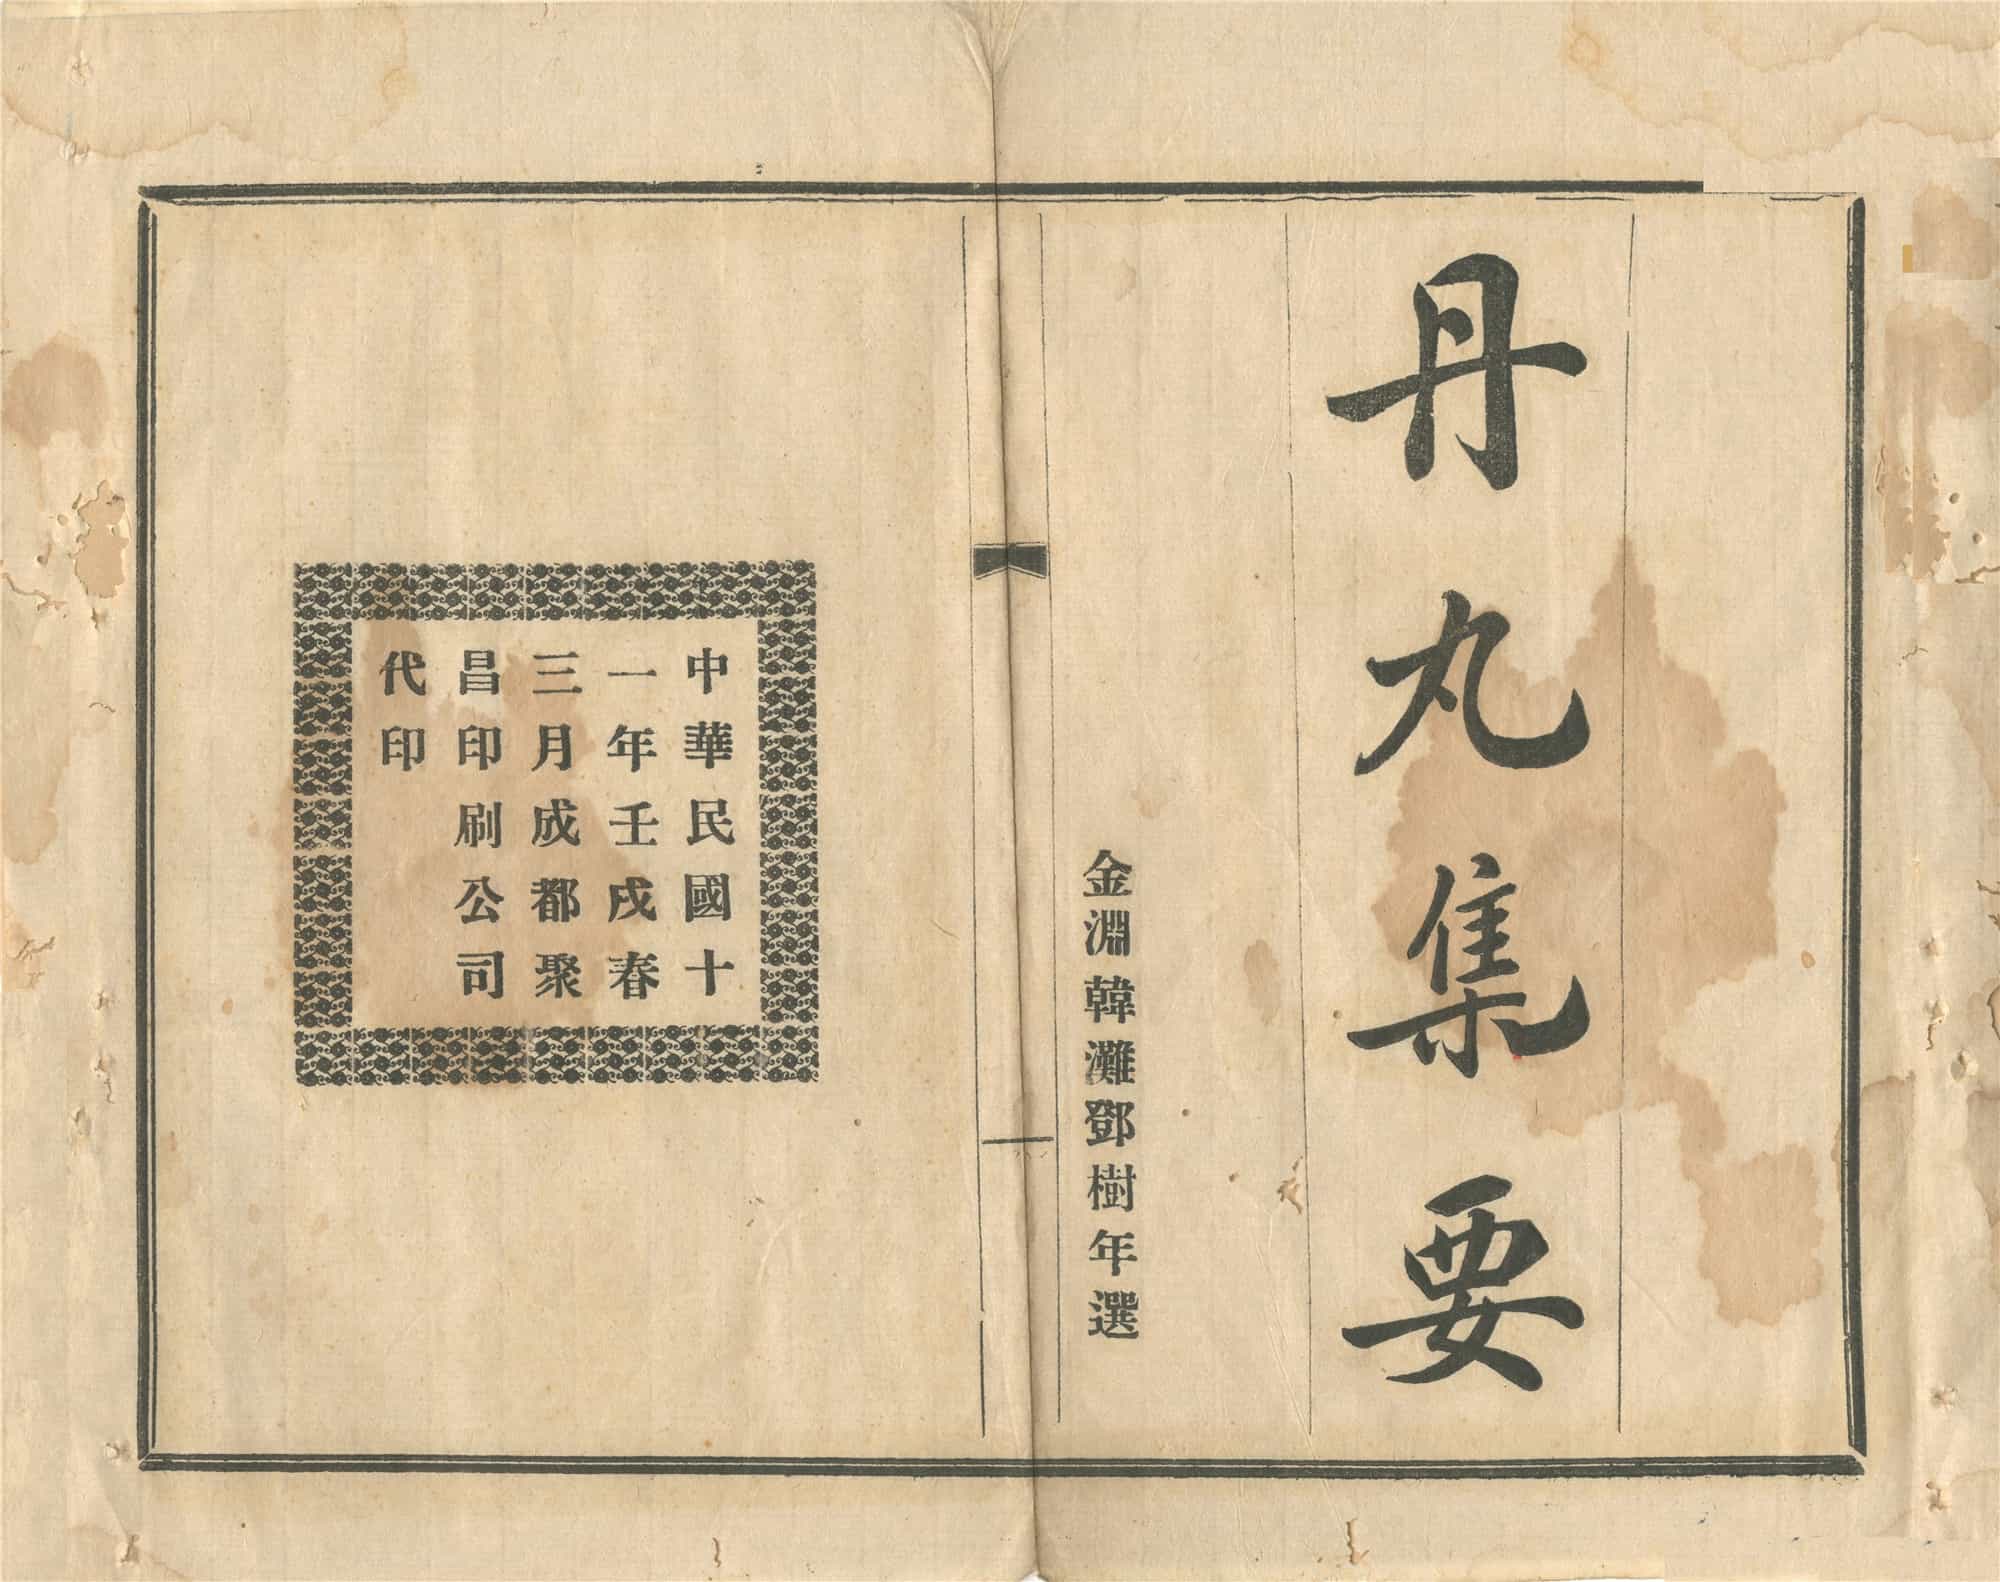 丹丸集要
金淵韓灘鄧樹年選
中華民國十
一年壬戌春
三月成都聚
昌印刷公司
代印